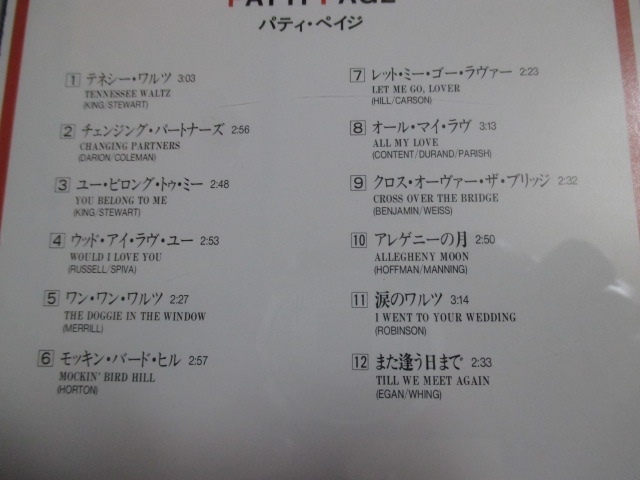 PATTI PAGE
パティ・ペイジ
1 テネシー・ワルツ 3:03
TENNESSEE WALTZ
(KING/STEWART)
2 チェンジング・パートナーズ 2:56
CHANGING PARTNERS
(DARION/COLEMAN)
3 ユー・ビロング・トゥ・ミー 2:48
YOU BELONG TO ME
(KING/STEWART)
4 ウッド・アイ・ラヴ・ユー 2:53
WOULD I LOVE YOU
(RUSSELL/SPIVA)
5 ワン・ワン・ワルツ 2:27
THE DOGGIE IN THE WINDOW
(MERRILL)
6 モッキン・バード・ヒル 2:57
MOCKIN' BIRD HILL
(HORTON)
7 レット・ミー・ゴー・ラヴァー 2:23
LET ME GO, LOVER
(HILL/CARSON)
8 オール・マイ・ラヴ 3:13
ALL MY LOVE
(CONTENT/DURAND/PARISH)
9 クロス・オーヴァー・ザ・ブリッジ 2:32
CROSS OVER THE BRIDGE
(BENJAMIN/WEISS)
10 アレゲニーの月 2:50
ALLEGHENY MOON
(HOFFMAN/MANNING)
11 涙のワルツ 3:14
I WENT TO YOUR WEDDING
(ROBINSON)
12 また逢う日まで 2:33
TILL WE MEET AGAIN
(EGAN/WHING)